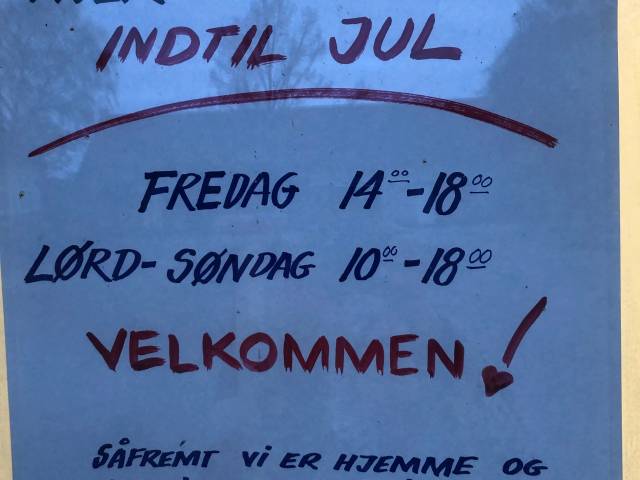 INDTIL JUL
FREDAG 14⁰⁰-18⁰⁰
LØRD-SØNDAG 10⁰⁰-18⁰⁰
VELKOMMEN!
SÅFREMT Vi ER HJEMME OG